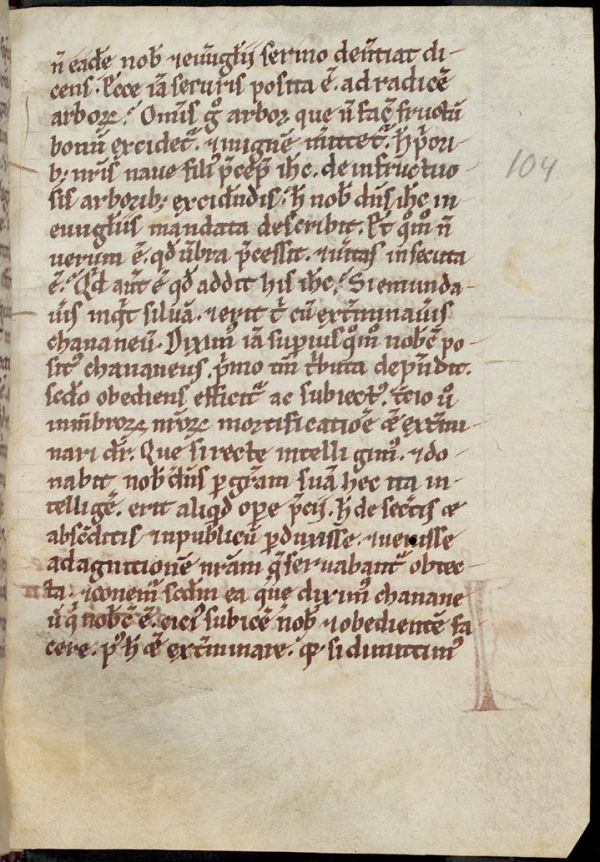 n̄ eade nob̄ ⁊ euuḡlii sermo den̄tiat di-
cens. Ecce iā securis posita ē. ad radicē
arborꝝ. Om̄is ḡ arbor que n̄ fac̄ fructū
bonū excidet᷑. ⁊ in ignē mittet᷑. h̄ p̄ori-
b; nr̄is naue filiꝰ p̄cep̄ ih̄c. de infructuo-
sis arborib; excidendis. h̄ nob̄ dn̄s ih̄c in
euuḡliis mandata describit. Et qͦmͦ n̄
uerum ē. qd̄ ūbra p̄cessit. ⁊ uītas insecuta
ē. Qd̄ aut̄ ē qd̄ addit his ih̄c. Si emunda-
ūis inqͥt siluā. ⁊ erit t̄ cū ext̄minaūis
chananeū. Diximꝰ iā supius qͦmͦ nob̄ ē po-
sitꝰ chananeus. p̄mo tm̄ t̄buta dependit.
scdo obediens efficit᷑ ac subiectꝰ. t̄cio ū
mēbrorꝝ nr̄orꝝ mortificatiōe ēē ext̄mi-
nari dr̄. Que si recte intelligimꝰ. ⁊ do-
nabit nob̄ dn̄s ꝑ gr̄am suā hec ita in-
telligē. erit aliqd̄ ope p̄cii. h̄ de sec̄tis ⁊
absc̄ditis ⁊ in publicū ꝑduxisse. ⁊ uenisse
ad agnitionē nr̄am q̄ seruabant᷑ obtec-
ta. scdm ea que diximꝰ chanane
ū q̄ nob̄c ē. eiꝰ subicē nob̄ ⁊ obedientē fa
cere. pꝰ h̄ ēē ext̄minare. qꝫ si dimittimꝰ
104